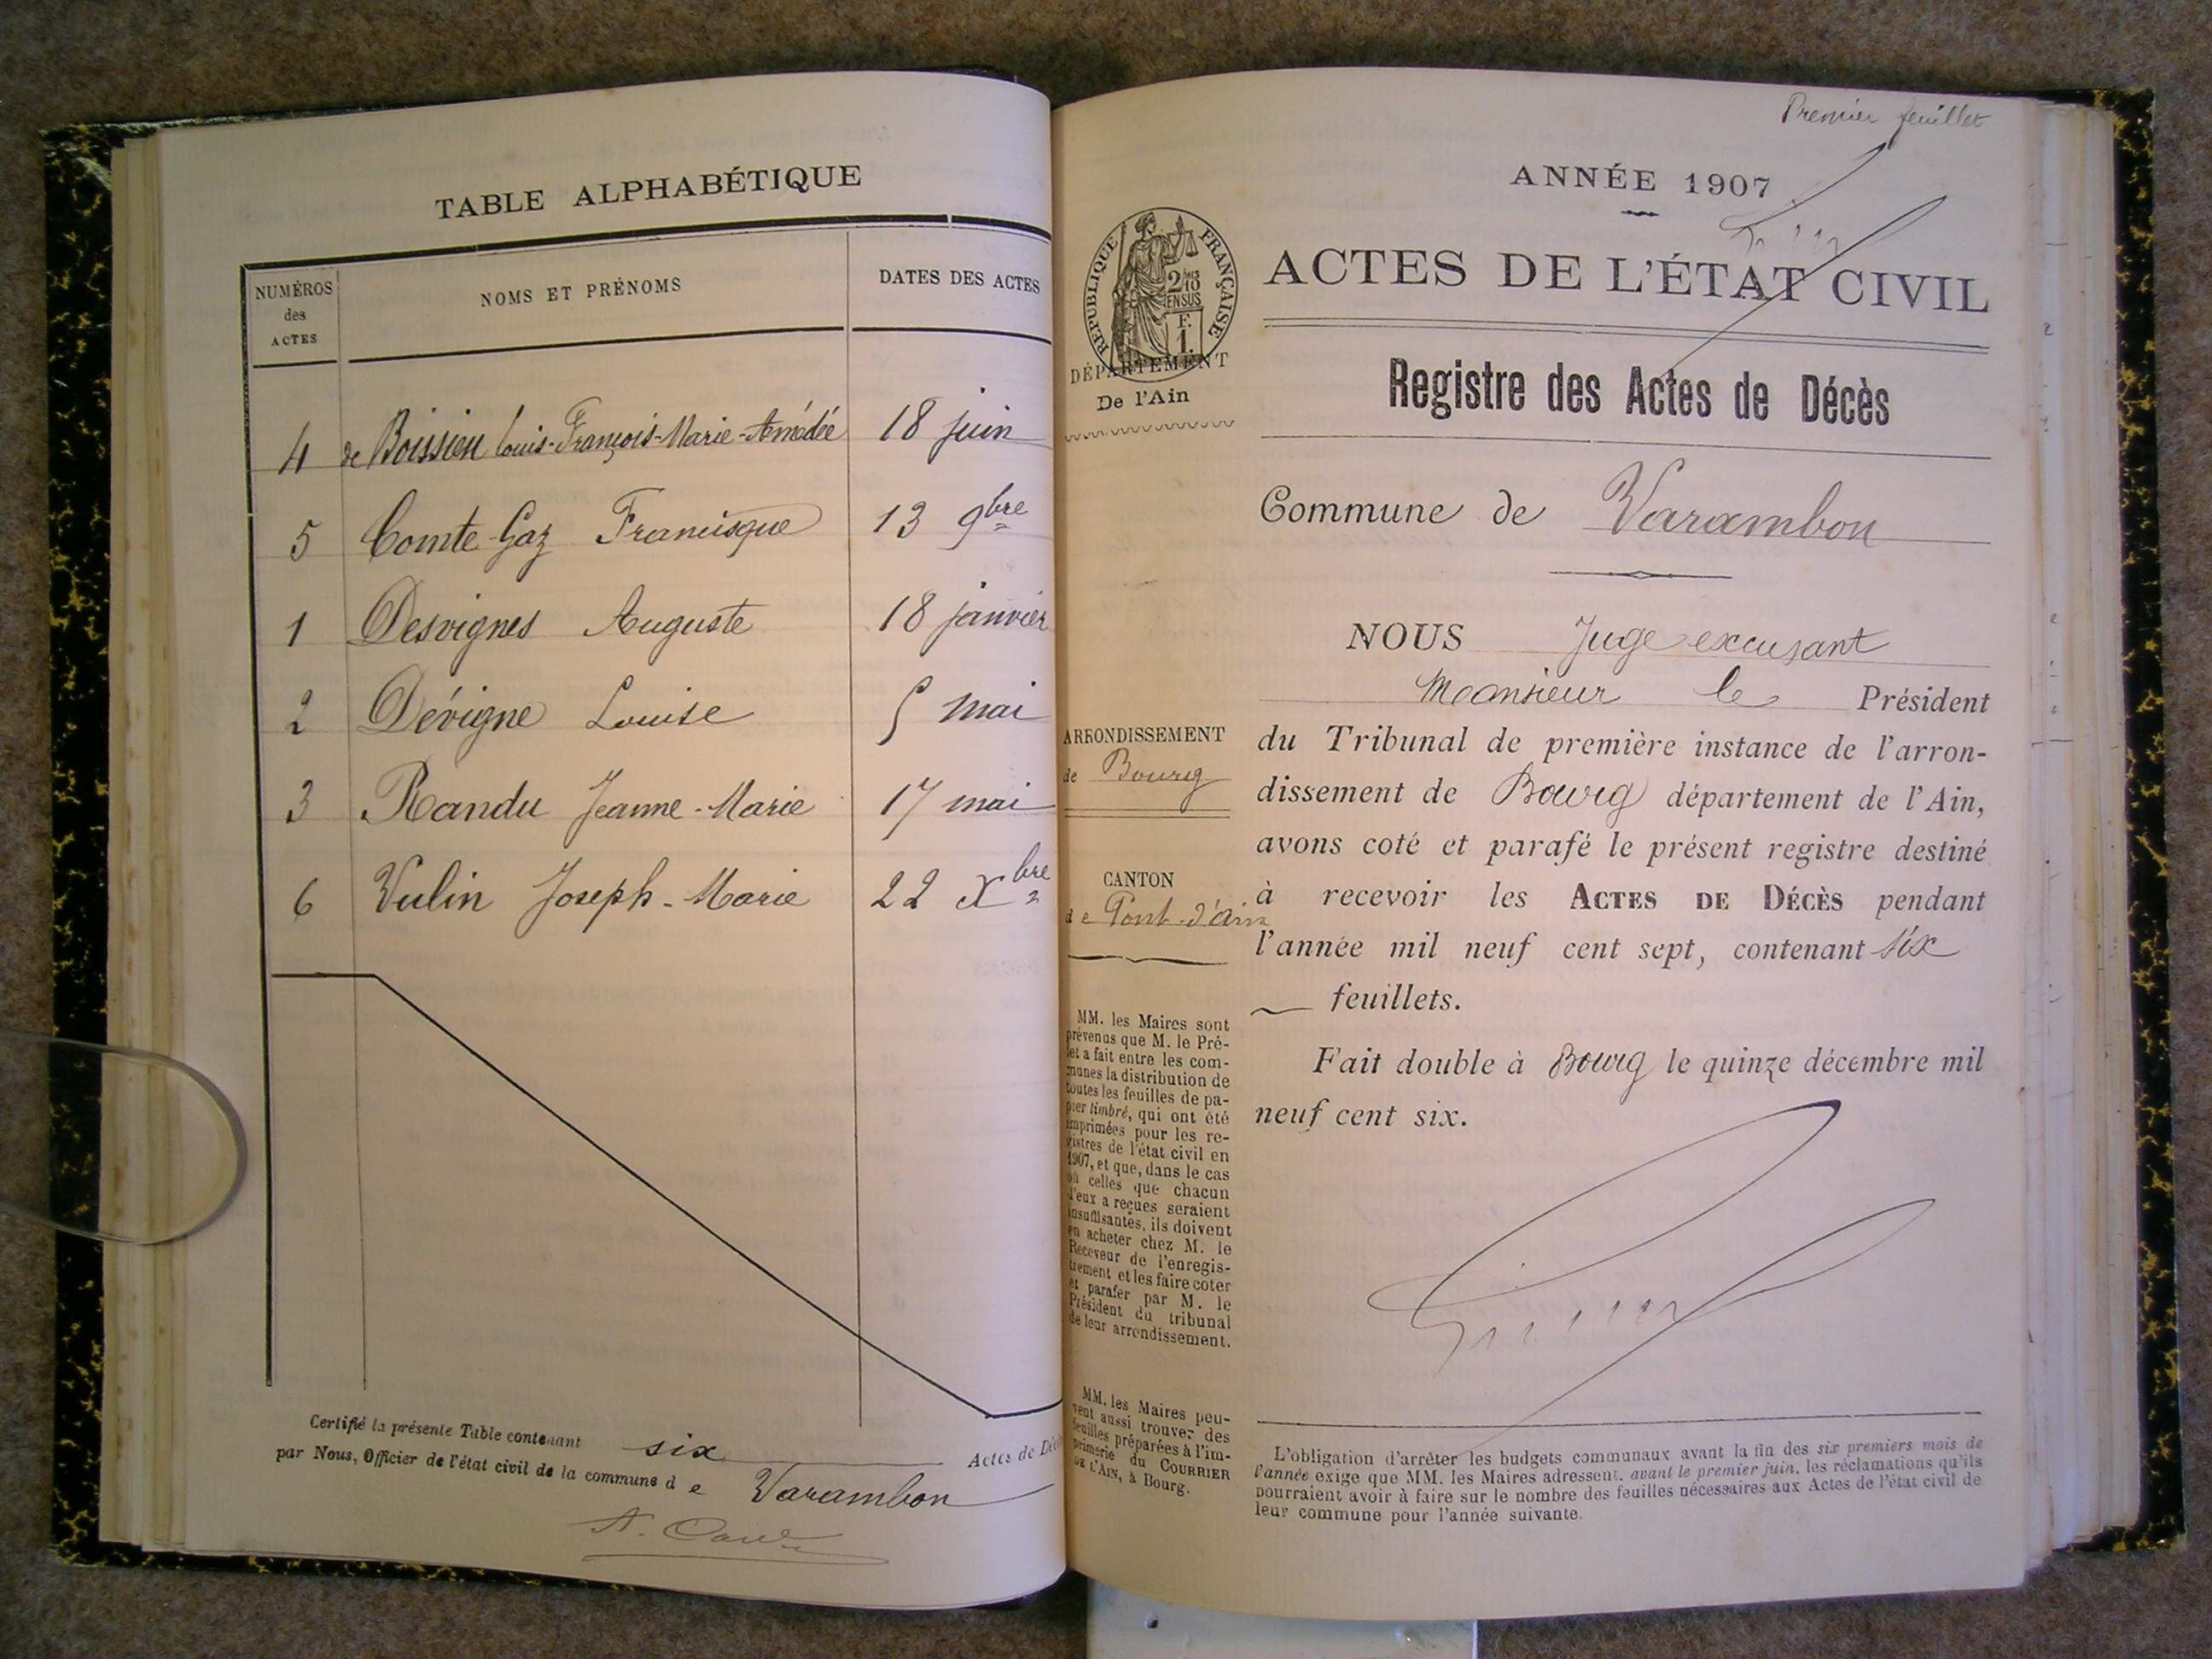 TABLE ALPHABÉTIQUE
NUMÉROS des ACTES
NOMS ET PRÉNOMS
DATES DES ACTES
4 de Boissieu Louis-François-Marie-Amédée 18 juin
5 Comte-Gaz Francisque 13 9bre
1 Desvignes Auguste 18 janvier
2 Dévigne Louise 5 mai
3 Randu Jeanne-Marie 17 mai
6 Vulin Joseph-Marie 22 Xbre
Certifié la présente Table contenant six Actes de Décès
par Nous, Officier de l'état civil de la commune de Varambon
Premier feuillet
ANNÉE 1907
ACTES DE L'ÉTAT CIVIL
RÉPUBLIQUE FRANÇAISE
DÉPARTEMENT
De l'Ain
Registre des Actes de Décès
Commune de Varambon
NOUS Juge excusant
Monsieur le Président
du Tribunal de première instance de l'arron-
dissement de Bourg département de l'Ain,
avons coté et parafé le présent registre destiné
à recevoir les ACTES DE DÉCÈS pendant
l'année mil neuf cent sept, contenant six
feuillets.
Fait double à Bourg le quinze décembre mil
neuf cent six.
ARRONDISSEMENT
de Bourg
CANTON
de Pont-d'Ain
MM. les Maires sont
prévenus que M. le Pré-
fet a fait entre les com-
munes la distribution de
toutes les feuilles de pa-
pier timbré, qui ont été
imprimées pour les re-
gistres de l'état civil en
1907, et que, dans le cas
où celles que chacun
d'eux a reçues seraient
insuffisantes, ils doivent
en acheter chez M. le
Receveur de l'enregis-
trement et les faire coter
et parafer par M. le
Président du tribunal
de leur arrondissement.
MM. les Maires peu-
vent aussi trouver des
feuilles préparées à l'im-
primerie du COURRIER
DE L'AIN, à Bourg.
L'obligation d'arrêter les budgets communaux avant la fin des six premiers mois de
l'année exige que MM. les Maires adressent, avant le premier juin, les réclamations qu'ils
pourraient avoir à faire sur le nombre des feuilles nécessaires aux Actes de l'état civil de
leur commune pour l'année suivante.